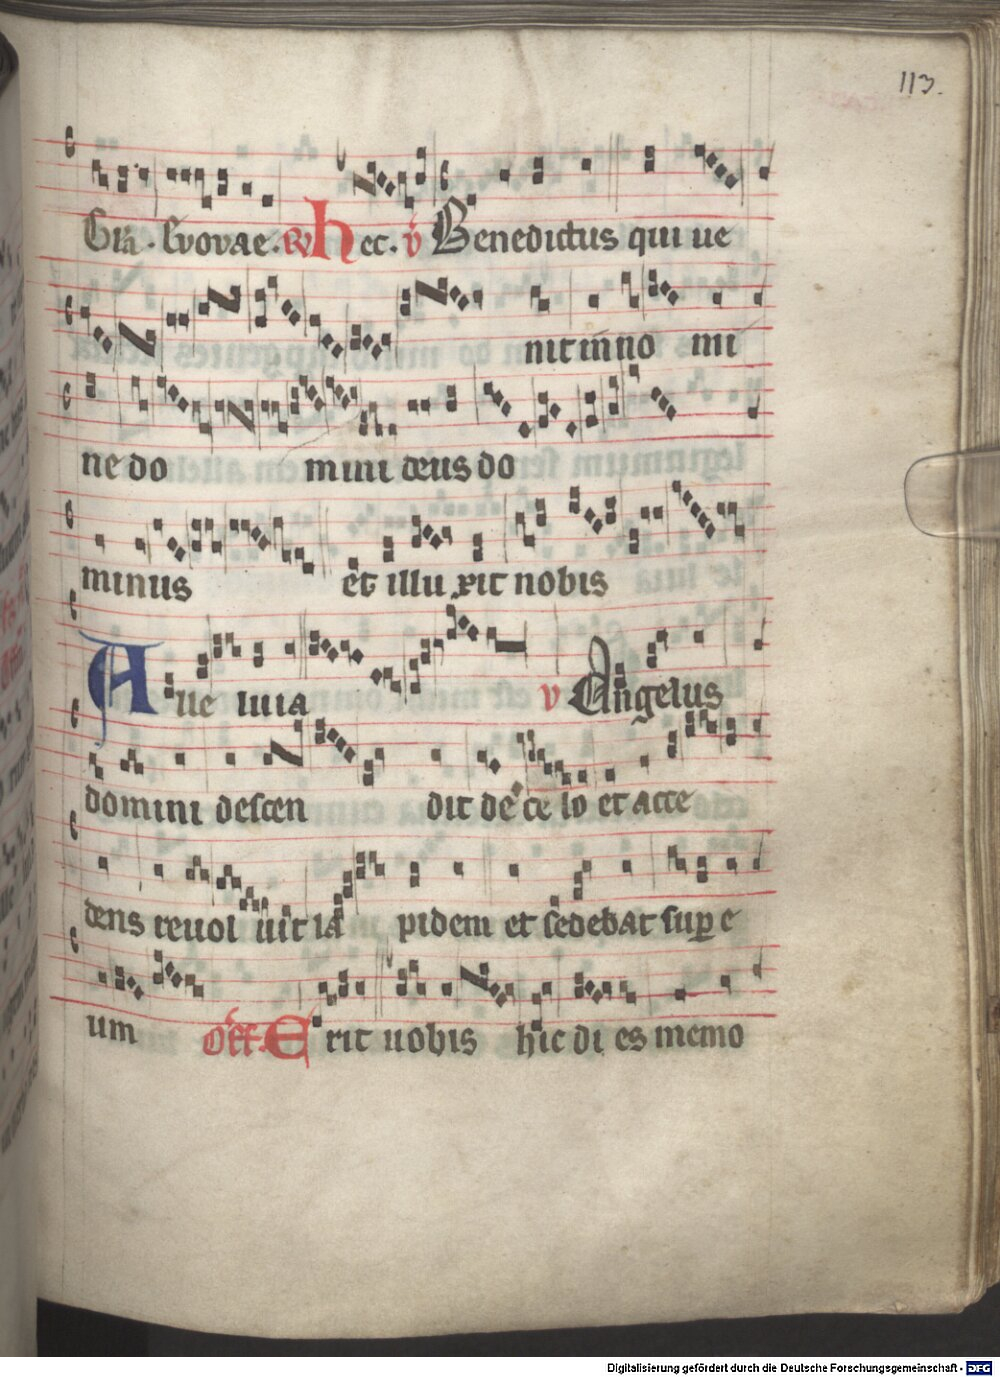 113.
Gła. Evovae. R hec. v Benedictus qui ue
nit in no mi
ne do mini deus do
minus et illu xit nobis
Alle luia v Angelus
domini descen dit de ce lo et acce
dens reuol uit la pidem et sedebat sup e
um Off. Erit uobis hic di es memo
Digitalisierung gefördert durch die Deutsche Forschungsgemeinschaft - DFG